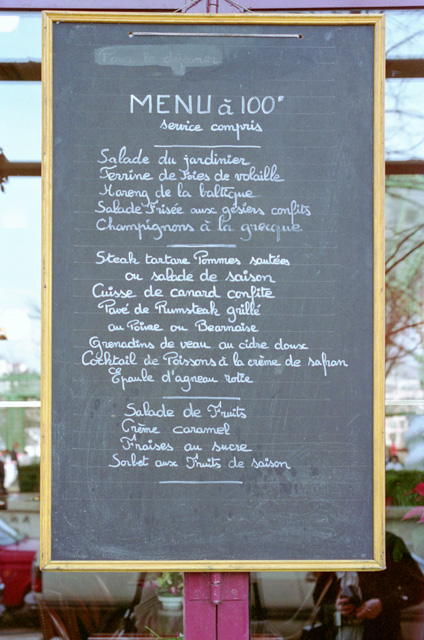 MENU à 100F
service compris
Salade du jardinier
Terrine de Foies de volaille
Hareng de la baltique
Salade Frisée aux gésiers confits
Champignons à la grecque
Steak tartare Pommes sautées
ou salade de saison
Cuisse de canard confite
Pavé de Rumsteak grillé
au Poivre ou Bearnaise
Grenadins de veau au cidre doux
Cocktail de Poissons à la crème de safran
Epaule d'agneau rotie
Salade de Fruits
Crème caramel
Fraises au sucre
Sorbet aux Fruits de saison